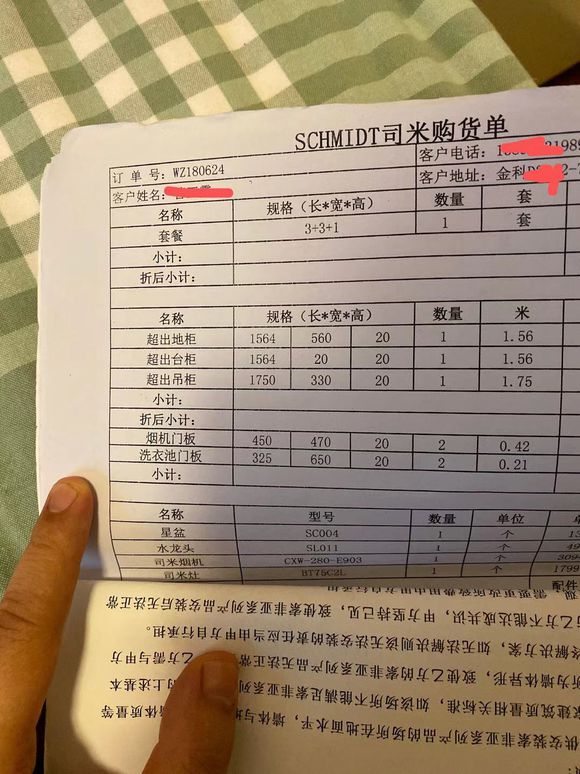 SCHMIDT司米购货单
订 单 号: WZ180624 客户电话: 2198
客户姓名: 客户地址: 金科
名称 规格（长*宽*高） 数量 套
套餐 3+3+1 1 套
小计:
折后小计:
名称 规格（长*宽*高） 数量 米
超出地柜 1564 560 20 1 1.56
超出台柜 1564 20 20 1 1.56
超出吊柜 1750 330 20 1 1.75
小计:
折后小计:
烟机门板 450 470 20 2 0.42
洗衣池门板 325 650 20 2 0.21
小计:
名称 型号 数量 单位
星盆 SC004 1 个
水龙头 SL011 1 个
司米烟机 CXW-280-E903 1 个
司米灶 BT75C2L 1 个 1799
配件
供安装索菲亚系列产品的场所在地面水平，墙体与地 体质量等
家建筑质量相关标准，如该场所不能满足索菲亚系列 上述基本
所为墙体异形，致使乙方的索菲亚系列产品无法正常 乙方需与甲方
终解决方案，如无法解决则该无法安装的责任应当由甲方自行承担。
乙方不能达成共识，甲方坚持己见，致使索菲亚系列产品安装后无法正常